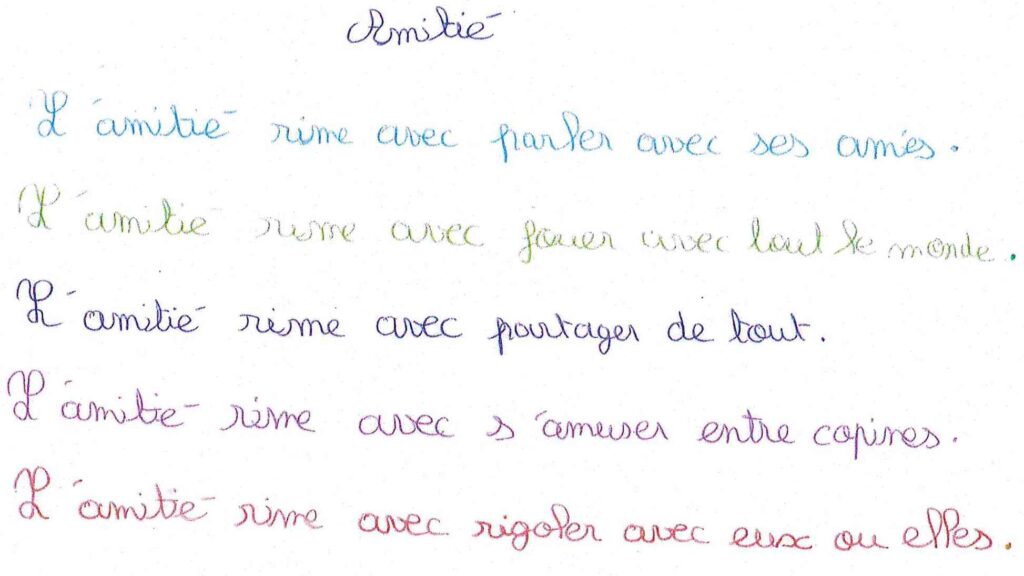 Amitié
L'amitié rime avec parler avec ses amies.
L'amitié rime avec jouer avec tout le monde.
L'amitié rime avec partager de tout.
L'amitié rime avec s'amuser entre copines.
L'amitié rime avec rigoler avec eux ou elles.